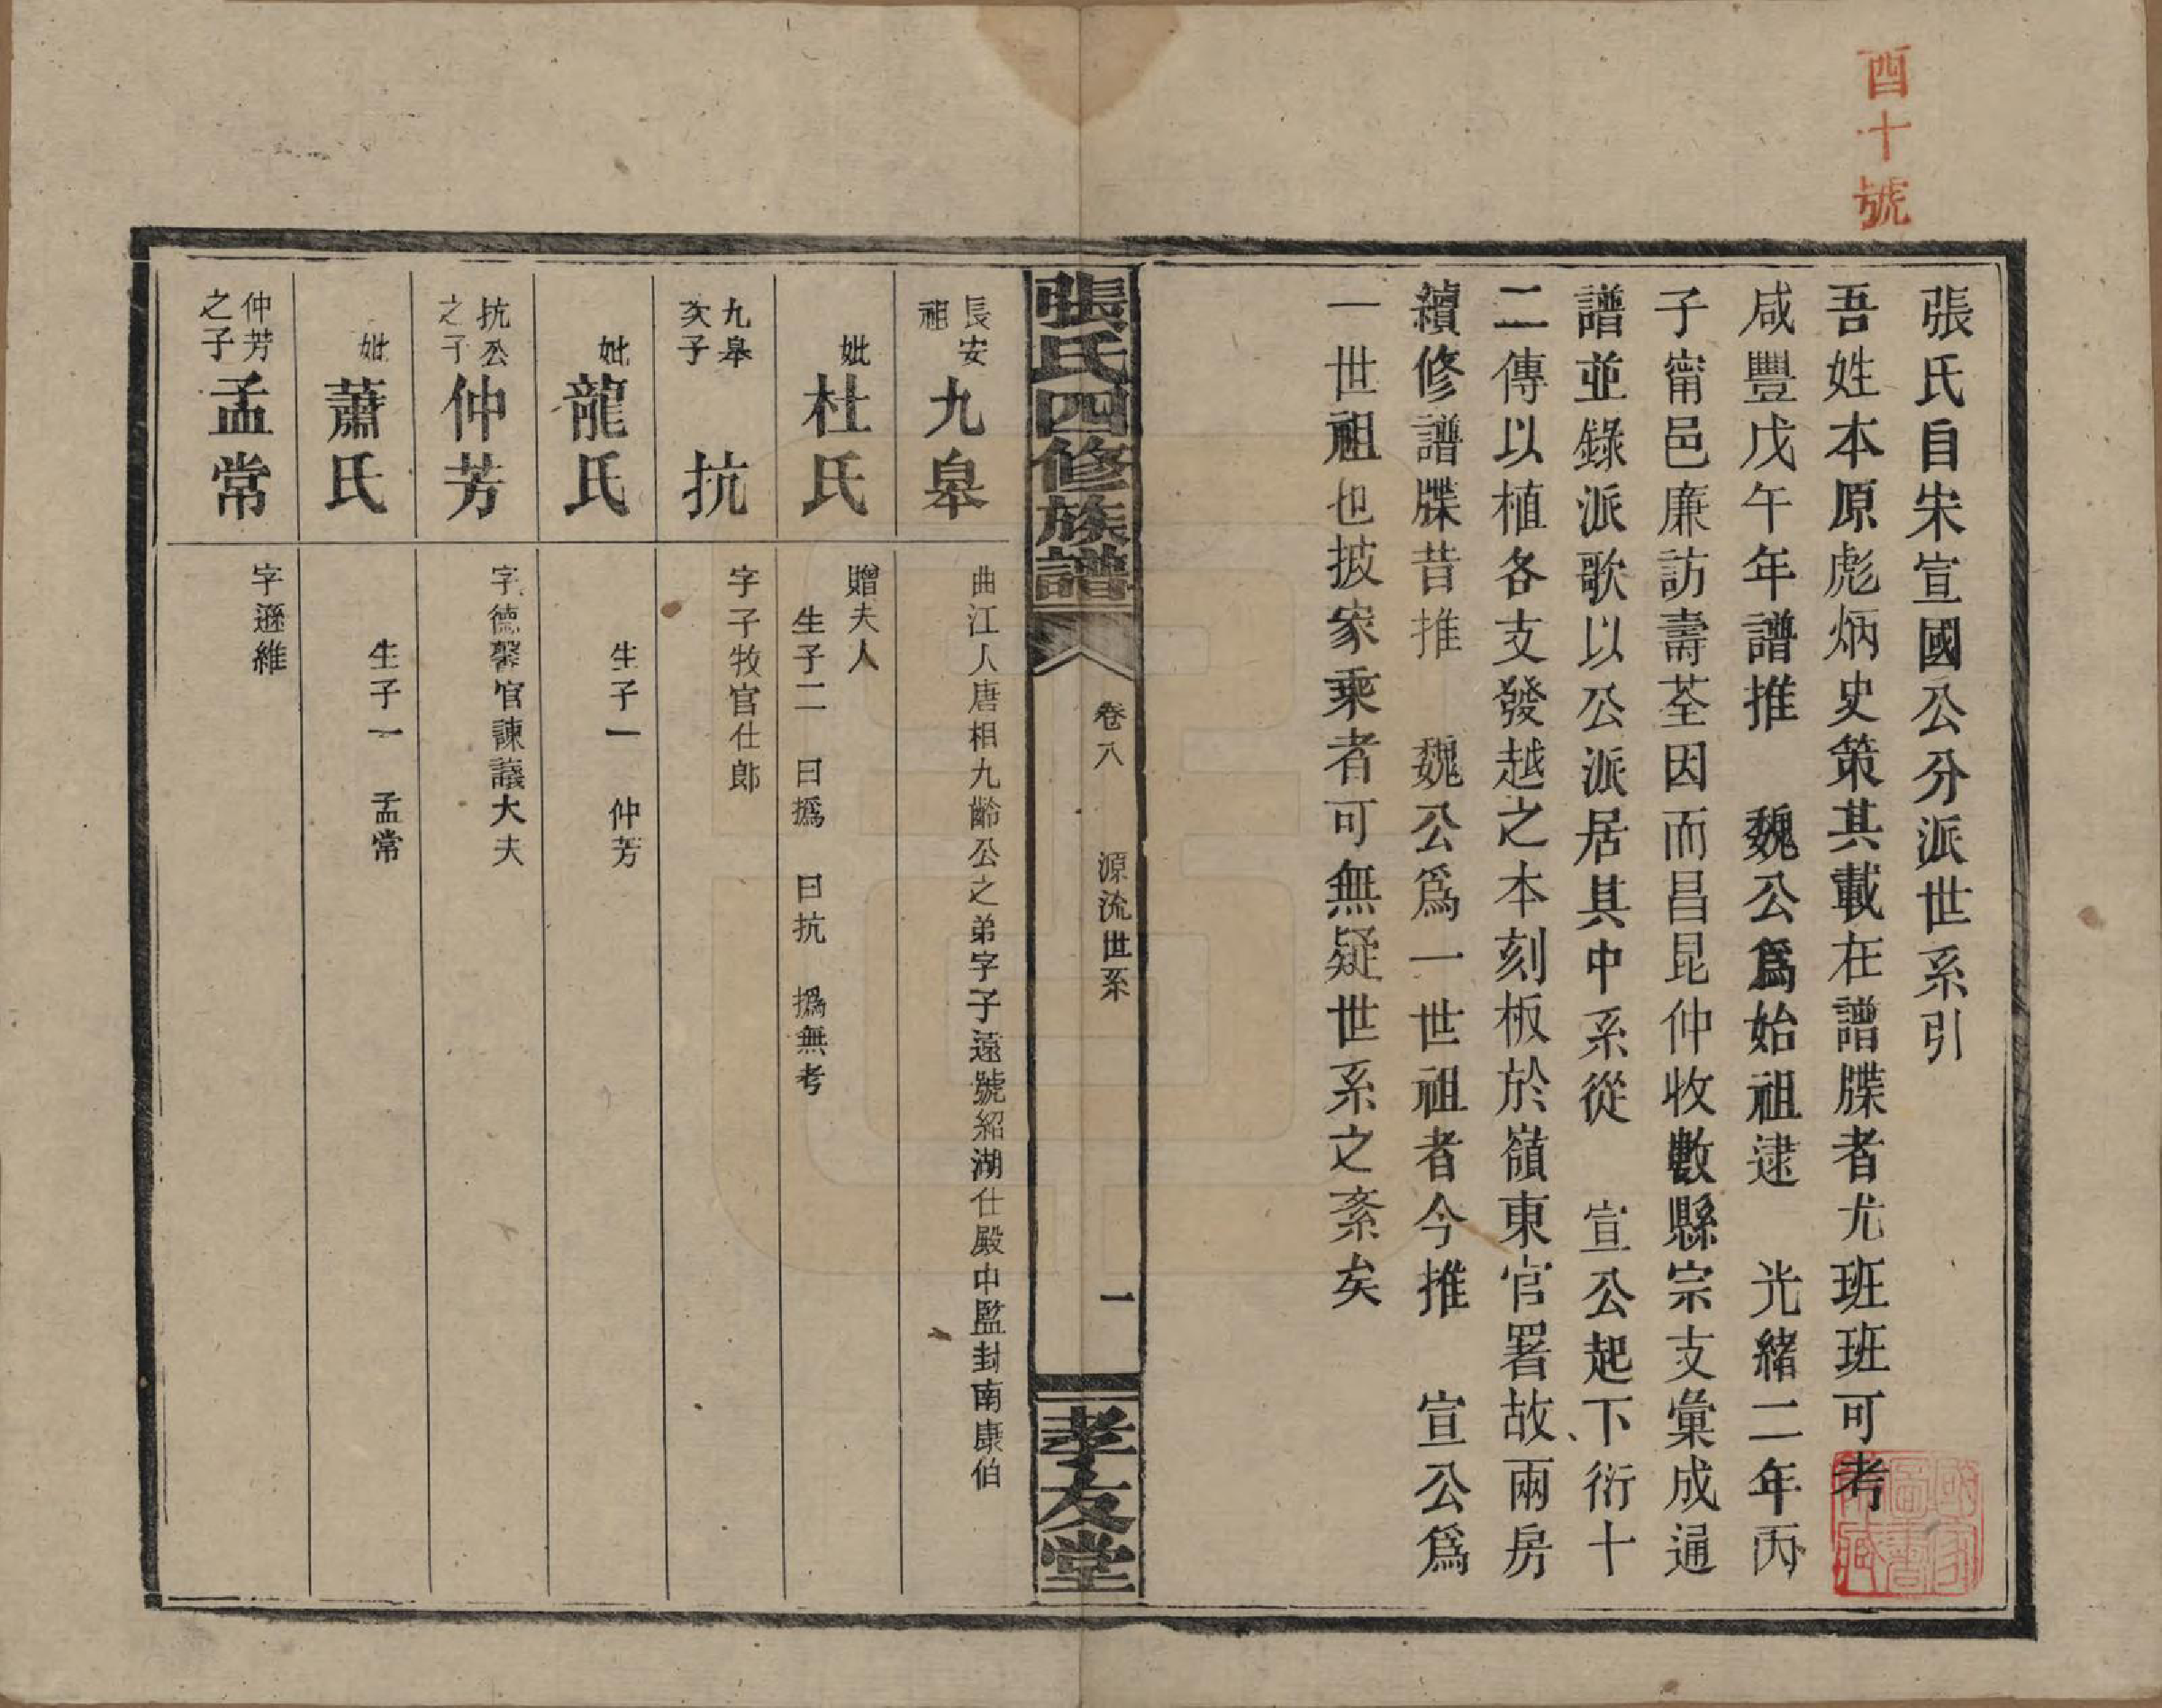 酉十號
張氏自宋宣國公分派世系引
吾姓本原彪炳史策其載在譜牒者尤班班可考
咸豐戊午年譜推　魏公爲始祖逮　光緒二年丙
子甯邑廉訪壽荃因而昌昆仲收數縣宗支彙成通
譜並錄派歌以公派居其中系從　宣公起下衍十
二傳以植各支發越之本刻板於嶺東官署故兩房
續修譜牒昔推　魏公爲一世祖者今推　宣公爲
一世祖也披家乘者可無疑世系之紊矣
張氏四修族譜
卷八
源流世系
一
孝友堂
長安
祖
九皋
曲江人唐相九齡公之弟字子遠號紹湖仕殿中監封南康伯
妣
杜氏
贈夫人
生子二　曰撝　曰抗　撝無考
九皋
次子
抗
字子牧官仕郎
妣
龍氏
生子一　仲芳
抗公
之子
仲芳
字德馨官諫議大夫
妣
蕭氏
生子一　孟常
仲芳
之子
孟常
字遜維